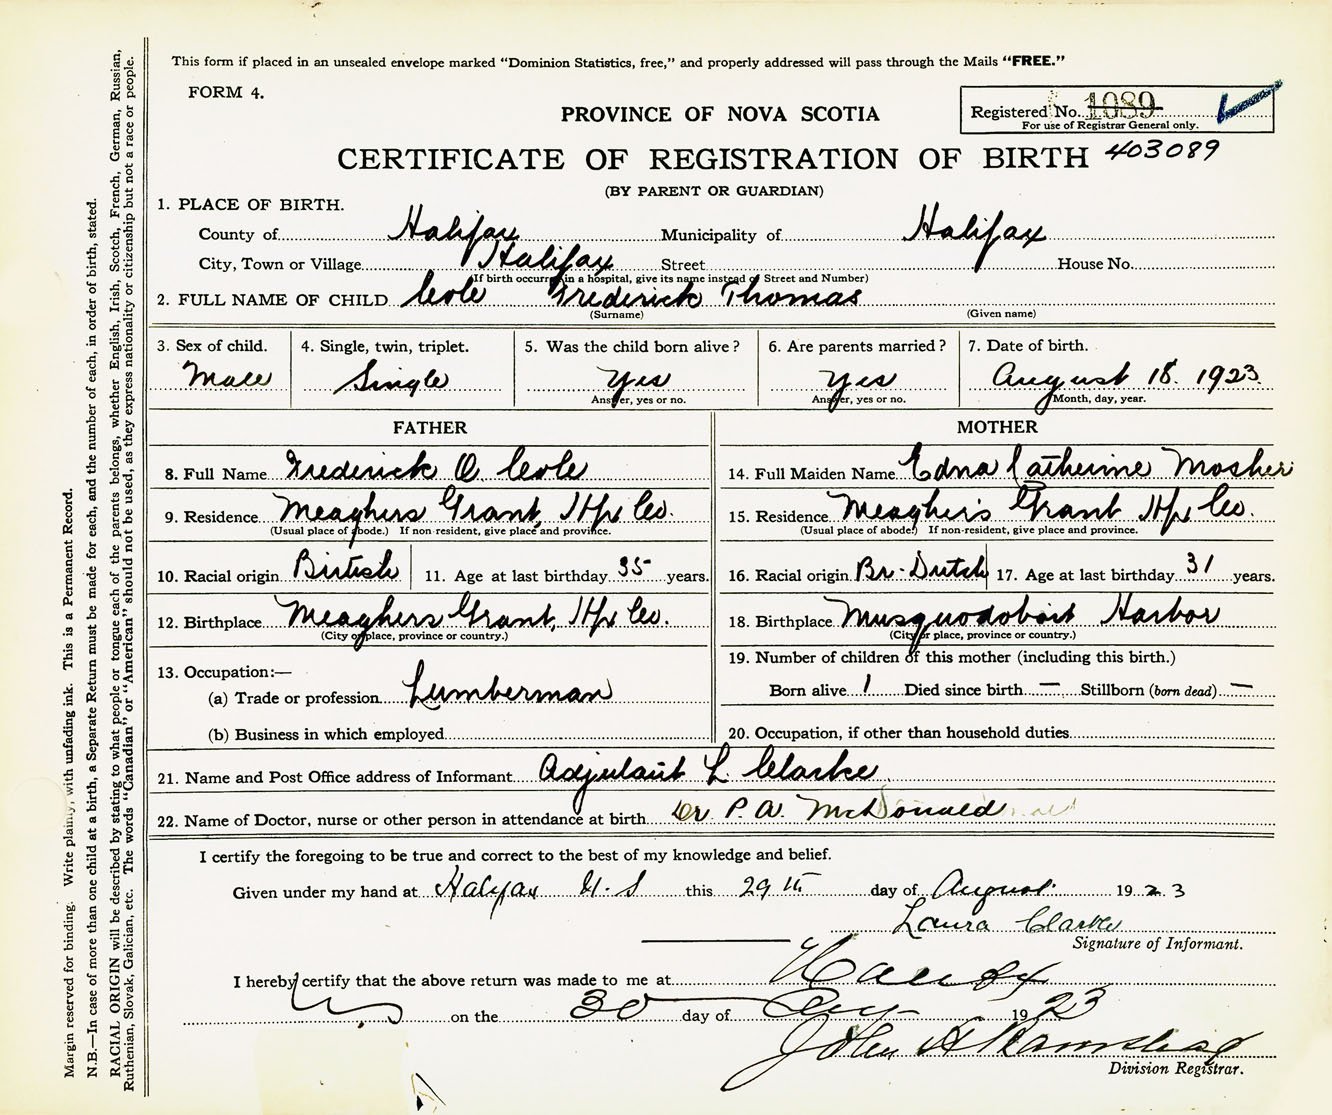 This form if placed in an unsealed envelope marked "Dominion Statistics, free," and properly addressed will pass through the Mails "FREE."
FORM 4.
PROVINCE OF NOVA SCOTIA
Registered No. 1089
For use of Registrar General only.
CERTIFICATE OF REGISTRATION OF BIRTH 403089
(BY PARENT OR GUARDIAN)
1. PLACE OF BIRTH.
County of Halifax Municipality of Halifax
City, Town or Village Halifax Street House No.
(If birth occurred in a hospital, give its name instead of Street and Number)
2. FULL NAME OF CHILD Cole Frederick Thomas
(Surname) (Given name)
3. Sex of child. 4. Single, twin, triplet. 5. Was the child born alive? 6. Are parents married? 7. Date of birth.
Male Single Yes Yes August 18. 1923
Answer, yes or no. Answer, yes or no. Month, day, year.
FATHER MOTHER
8. Full Name Frederick O. Cole 14. Full Maiden Name Edna Catherine Mosher
9. Residence Meaghers Grant, Hfx Co. 15. Residence Meagher's Grant Hfx Co.
(Usual place of abode.) If non-resident, give place and province. (Usual place of abode.) If non-resident, give place and province.
10. Racial origin British 11. Age at last birthday 35 years. 16. Racial origin Br-Dutch 17. Age at last birthday 31 years.
12. Birthplace Meaghers Grant, Hfx Co. 18. Birthplace Musquodoboit Harbor
(City or place, province or country.) (City or place, province or country.)
13. Occupation:— 19. Number of children of this mother (including this birth.)
(a) Trade or profession Lumberman Born alive 1 Died since birth — Stillborn (born dead) —
(b) Business in which employed 20. Occupation, if other than household duties
21. Name and Post Office address of Informant Adjutant L. Clarke
22. Name of Doctor, nurse or other person in attendance at birth Dr P. A. McDonald
I certify the foregoing to be true and correct to the best of my knowledge and belief.
Given under my hand at Halifax N.S this 29th day of August 1923
Laura Clarke
Signature of Informant.
I hereby certify that the above return was made to me at
on the 30 day of Aug 1923
John
Division Registrar.
Margin reserved for binding. Write plainly, with unfading ink. This is a Permanent Record.
N.B.—In case of more than one child at a birth, a Separate Return must be made for each, and the number of each, in order of birth, stated.
RACIAL ORIGIN will be described by stating to what people or tongue each of the parents belongs, whether English, Irish, Scotch, French, German, Russian,
Ruthenian, Slovak, Galician, etc. The words "Canadian" or "American" should not be used, as they express nationality or citizenship but not a race or people.